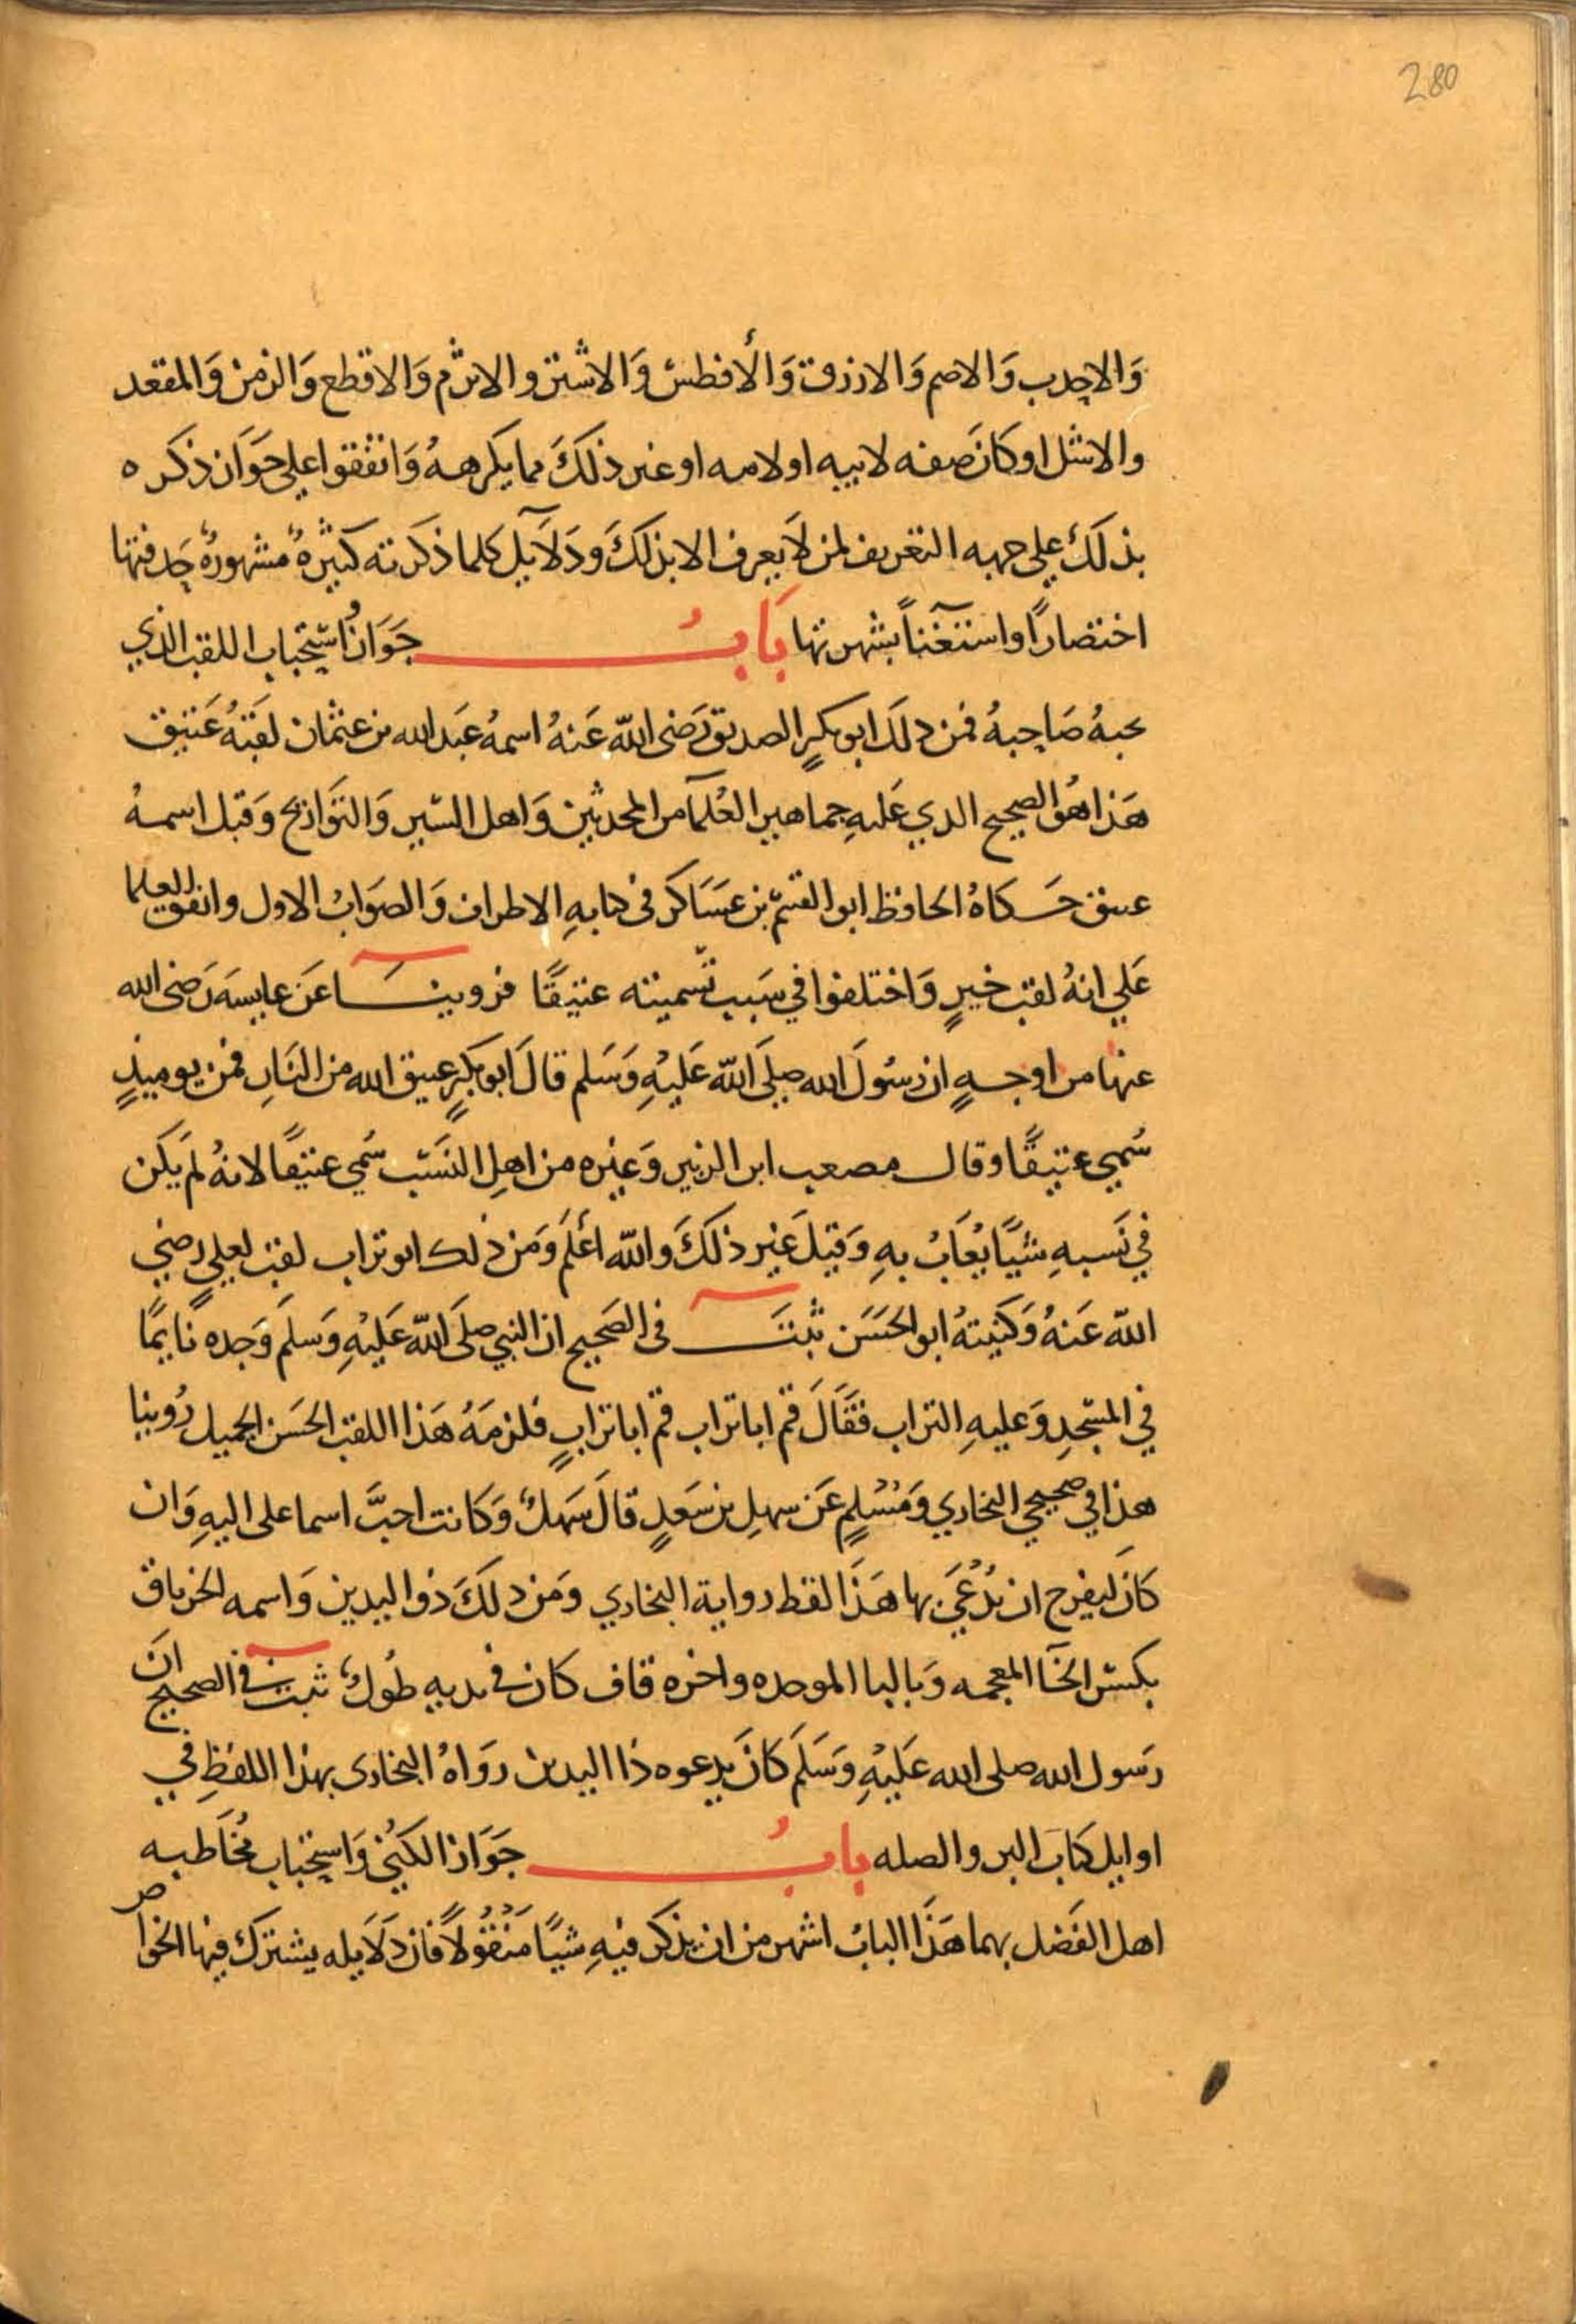 280
وَالاحدب وَالاصم وَالازرق وَالأفطس وَالاشتر والاثرم وَالاقطع وَالزمن وَالمقعد
والاشل او كانَ صفه لابيه او لامه او غير ذلكَ مما يكرههُ وَاتفقوا علي جَوَاز ذكره
بذلكَ علي جهه التعريف لمن لاَ يعرف الا بذلكَ ودَلاَيل كلما ذكرته كثيرهٌ مشهورهٌ حذفتها
اختصاراً واستغناً بشهرتها بَابُ جَوَازُ اسْتِحْباب اللقب الذي
يحبهُ صَاحِبهُ فمن ذلَك ابو بكرٍ الصديق رَضى الله عَنهُ اسمهُ عَبد الله بن عثمان لقبَهُ عَتيق
هَذا هُو الصحيح الذي عَليهِ جماهير العُلمآ من المحدثين وَاهل السّير وَالتوَاريخ وَقيل اسمهُ
عتيق حَكاهُ الحافظ ابو القسم بن عسَاكر فى كتابهِ الاطراف وَالصوَابُ الاول واتفق العلما
عَلي انهُ لقب خيرٍ وَاختلفوا في سَبب تسميته عتيقًا فروينَا عَن عايشهَ رَضى الله
عنها من اوجهٍ ان رسُولَ الله صلىَ الله عَليْهِ وَسَلم قالَ ابو بكرٍ عتيق الله من النارِ فمن يوميذٍ
سُمي عتيقًا وقال مصعب ابن الزبير وَغيره من اهلِ النسَب سُمي عتيقًا لانهُ لم يَكن
في نَسبهِ شيًا يُعَابُ بهِ وَقيلَ غير ذلكَ والله اعْلَم وَمن ذلك ابو تراب لقب لعليٍ رضي
الله عَنهُ وَكنيتهُ ابو الحسَن ثبتَ فى الصَحيح ان النبي صلىَ الله عَليْهِ وَسلم وَجده نَايمًا
في المسْجدِ وَعليهِ التراب فقَالَ قم ابا تراب قم ابا ترابٍ فلزمَهُ هَذا اللقب الحسَن الجميل رُوينا
هذا في صحيحي البخاري وَمُسْلمٍ عَن سهلِ بن سَعدٍ قالَ سَهلٌ وَكانت احبَّ اسما على اليهِ وَان
كانَ ليفرح ان يُدْعَي بها هَذا لفظ رواية البخاري ومَن ذلكَ ذوا اليدين وَاسمه الخرباق
بكسْر الخآ المعجمه وَبالبا الموحده واخره قاف كان فى يديهِ طُولٌ ثبت في الصحيح انَ
رَسول الله صلى الله عَليْهِ وَسَلَم كانَ يدعوه ذا اليدين روَاهُ البخارى بهذا اللفظِ في
اوايل كتاب البر والصله بابُ جَوَاز الكُنى وَاسْتحْباب مُخَاطبه
اهل الفَضل بهما هَذا البابُ اشهر من ان يذكر فيهِ شيًا مَنْقُولاً فان دَلاَيله يشترك فيها الخواص